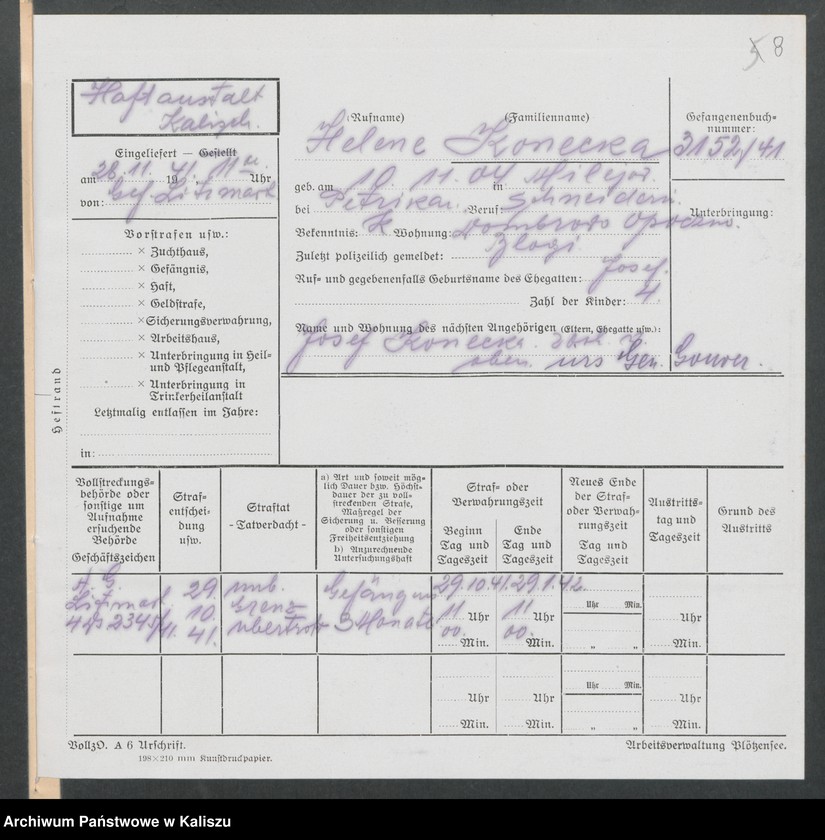 8
Haftanstalt
Kalisch.
Eingeliefert — Gestellt
am 28.11. 1941. 11 u. Uhr
von: Gef. Litzmast.
Vorstrafen usw.:
× Zuchthaus,
× Gefängnis,
× Haft,
× Geldstrafe,
× Sicherungsverwahrung,
× Arbeitshaus,
× Unterbringung in Heil-
und Pflegeanstalt,
× Unterbringung in
Trinkerheilanstalt
Letztmalig entlassen im Jahre:
in:
(Rufname) (Familienname)
Helene Konecka
geb. am 10. 11. 04 in Milejow.
bei Petrikau. Beruf: Schneiderin.
Bekenntnis: K Wohnung: Dombrowo Opoczno.
Zuletzt polizeilich gemeldet:
Ruf- und gegebenenfalls Geburtsname des Ehegatten: Josef.
Zahl der Kinder: 4
Name und Wohnung des nächsten Angehörigen (Eltern, Ehegatte usw.):
Josef Konecka.
oben. Gen. Gouver.
Gefangenenbuch-
nummer:
3152/41
Unterbringung:
Heftrand
Vollstreckungs-
behörde oder
sonstige um
Aufnahme
ersuchende
Behörde
Geschäftszeichen
Straf-
entschei-
dung
usw.
Straftat
- Tatverdacht -
a) Art und soweit mög-
lich Dauer bzw. Höchst-
dauer der zu voll-
streckenden Strafe,
Maßregel der
Sicherung u. Besserung
oder sonstigen
Freiheitsentziehung
b) Anzurechnende
Untersuchungshaft
Straf- oder
Verwahrungszeit
Beginn
Tag und
Tageszeit
Ende
Tag und
Tageszeit
Neues Ende
der Straf-
oder Verwah-
rungszeit
Tag und
Tageszeit
Austritts-
tag und
Tageszeit
Grund des
Austritts
A. G. 29. unb. Gefängnis 29.10.41. 29.1.42.
Litzmast. 10. Grenz- 3 Monate 11 Uhr 11 Uhr Uhr Min. Uhr
41. übertrett 00. Min. 00. Min. „ „ Min.
Uhr Min.
Uhr Uhr Uhr
Min. Min. „ „ Min.
VollzO. A 6 Urschrift.
198×210 mm Kunstdruckpapier.
Arbeitsverwaltung Plötzensee.
Archiwum Państwowe w Kaliszu